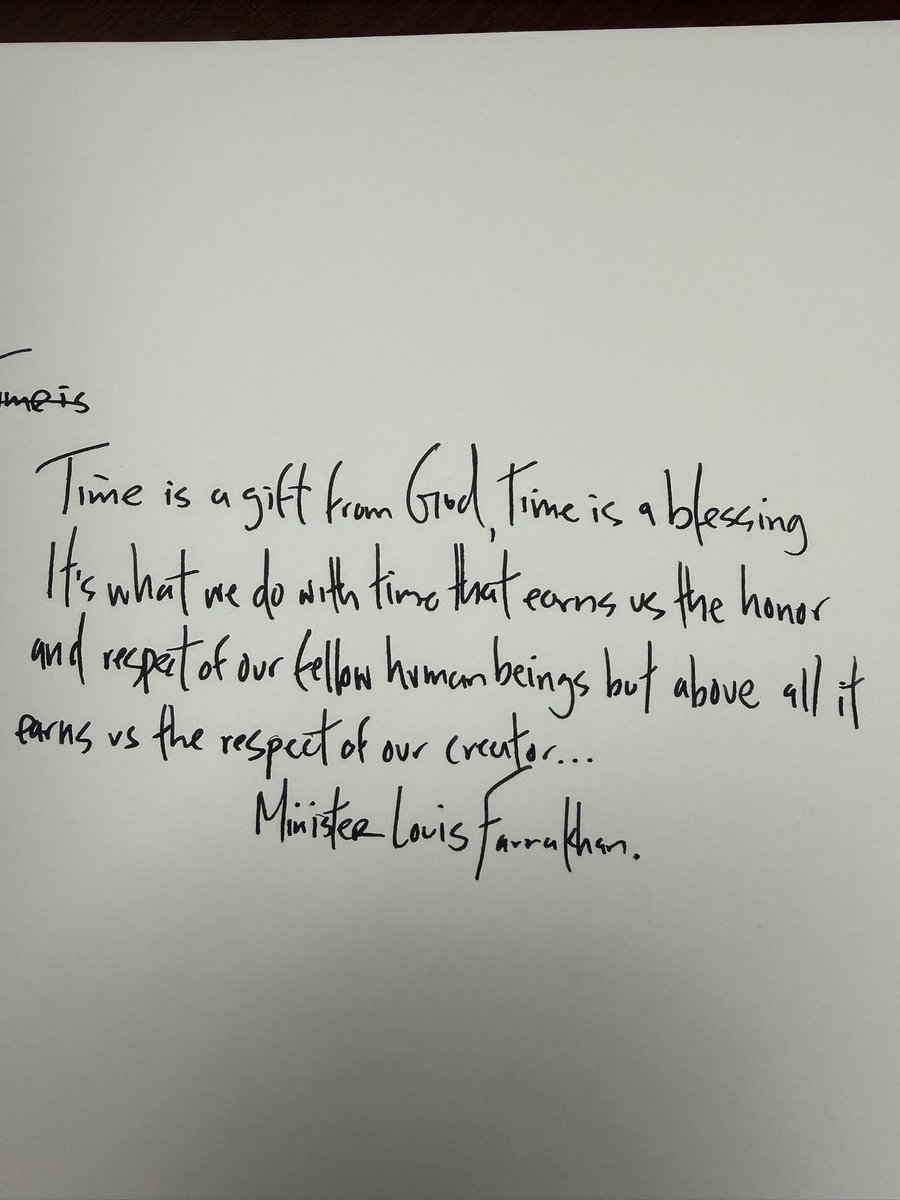 Time is
Time is a gift from God, Time is a blessing
It's what we do with time that earns us the honor
and respect of our fellow human beings but above all it
earns us the respect of our creator...
Minister Louis Farrakhan.